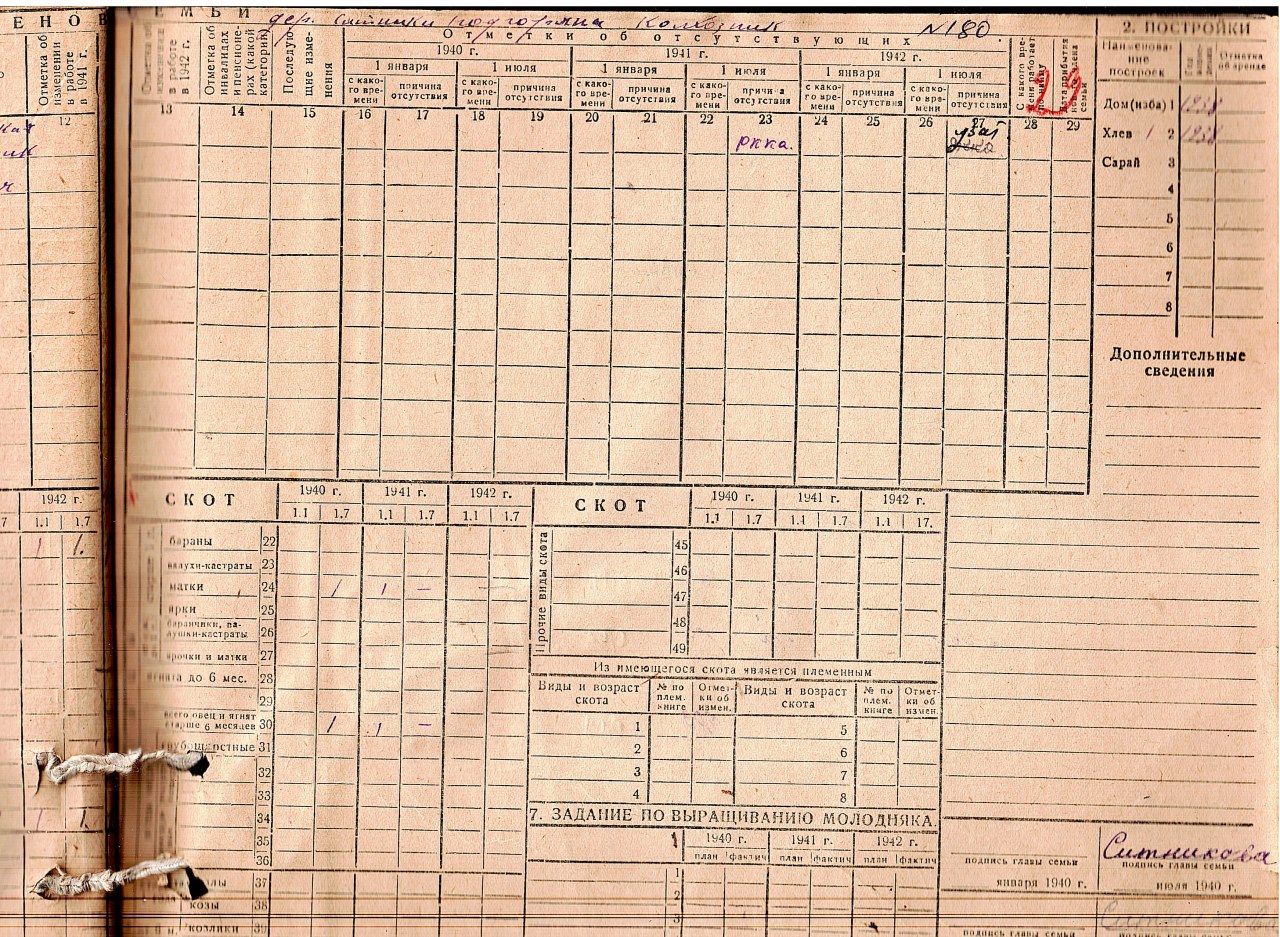 ЕНОВ
Отметка об изменении в работе в 1941 г.
12
1942 г.
7 1.1 1.7
1 1.
ЕМЬИ дер. Ситники Колхозник №180
Отметки об отсутствующих
в работе в 1942 г.
Отметка об инвалидах и пенсионерах (какой категории)
Последующие изменения
1940 г. 1941 г. 1942 г.
1 января 1 июля 1 января 1 июля 1 января 1 июля
с какого времени причина отсутствия с какого времени причина отсутствия с какого времени причина отсутствия с какого времени причина отсутствия с какого времени причина отсутствия с какого времени причина отсутствия
13 14 15 16 17 18 19 20 21 22 23 24 25 26 27 28 29
ркка.
2. ПОСТРОЙКИ
Наименование построек
Отметка об аренде
Дом(изба) 1 1938
Хлев 1 2 1938
Сарай 3
4
5
6
7
8
Дополнительные
сведения
СКОТ 1940 г. 1941 г. 1942 г.
1.1 1.7 1.1 1.7 1.1 1.7
бараны 22
валухи-кастраты 23
матки 24 1 1 – –
ярки 25
баранчики, валушки-кастраты 26
ярочки и матки 27
ягнята до 6 мес. 28
29
всего овец и ягнят старше 6 месяцев 30 1 1 –
грубошерстные 31
32
33
34
35
36
37
козы 38
козлики 39
СКОТ 1940 г. 1941 г. 1942 г.
1.1 1.7 1.1 1.7 1.1 17.
Прочие виды скота
45
46
47
48
49
Из имеющегося скота является племенным
Виды и возраст скота № по плем. книге Отметки об измен. Виды и возраст скота № по плем. книге Отметки об измен.
1 5
2 6
3 7
4 8
7. ЗАДАНИЕ ПО ВЫРАЩИВАНИЮ МОЛОДНЯКА.
1940 г. 1941 г. 1942 г.
план фактич план фактич план фактич
1
2
3
Ситникова
подпись главы семьи подпись главы семьи
января 1940 г. июля 1940 г.
Ситникова
подпись главы семьи подпись главы семьи